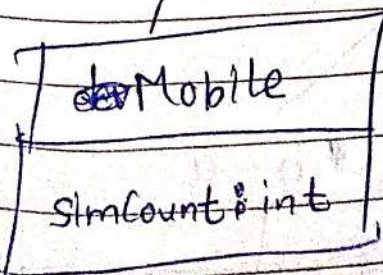 Mobile
simCount : int